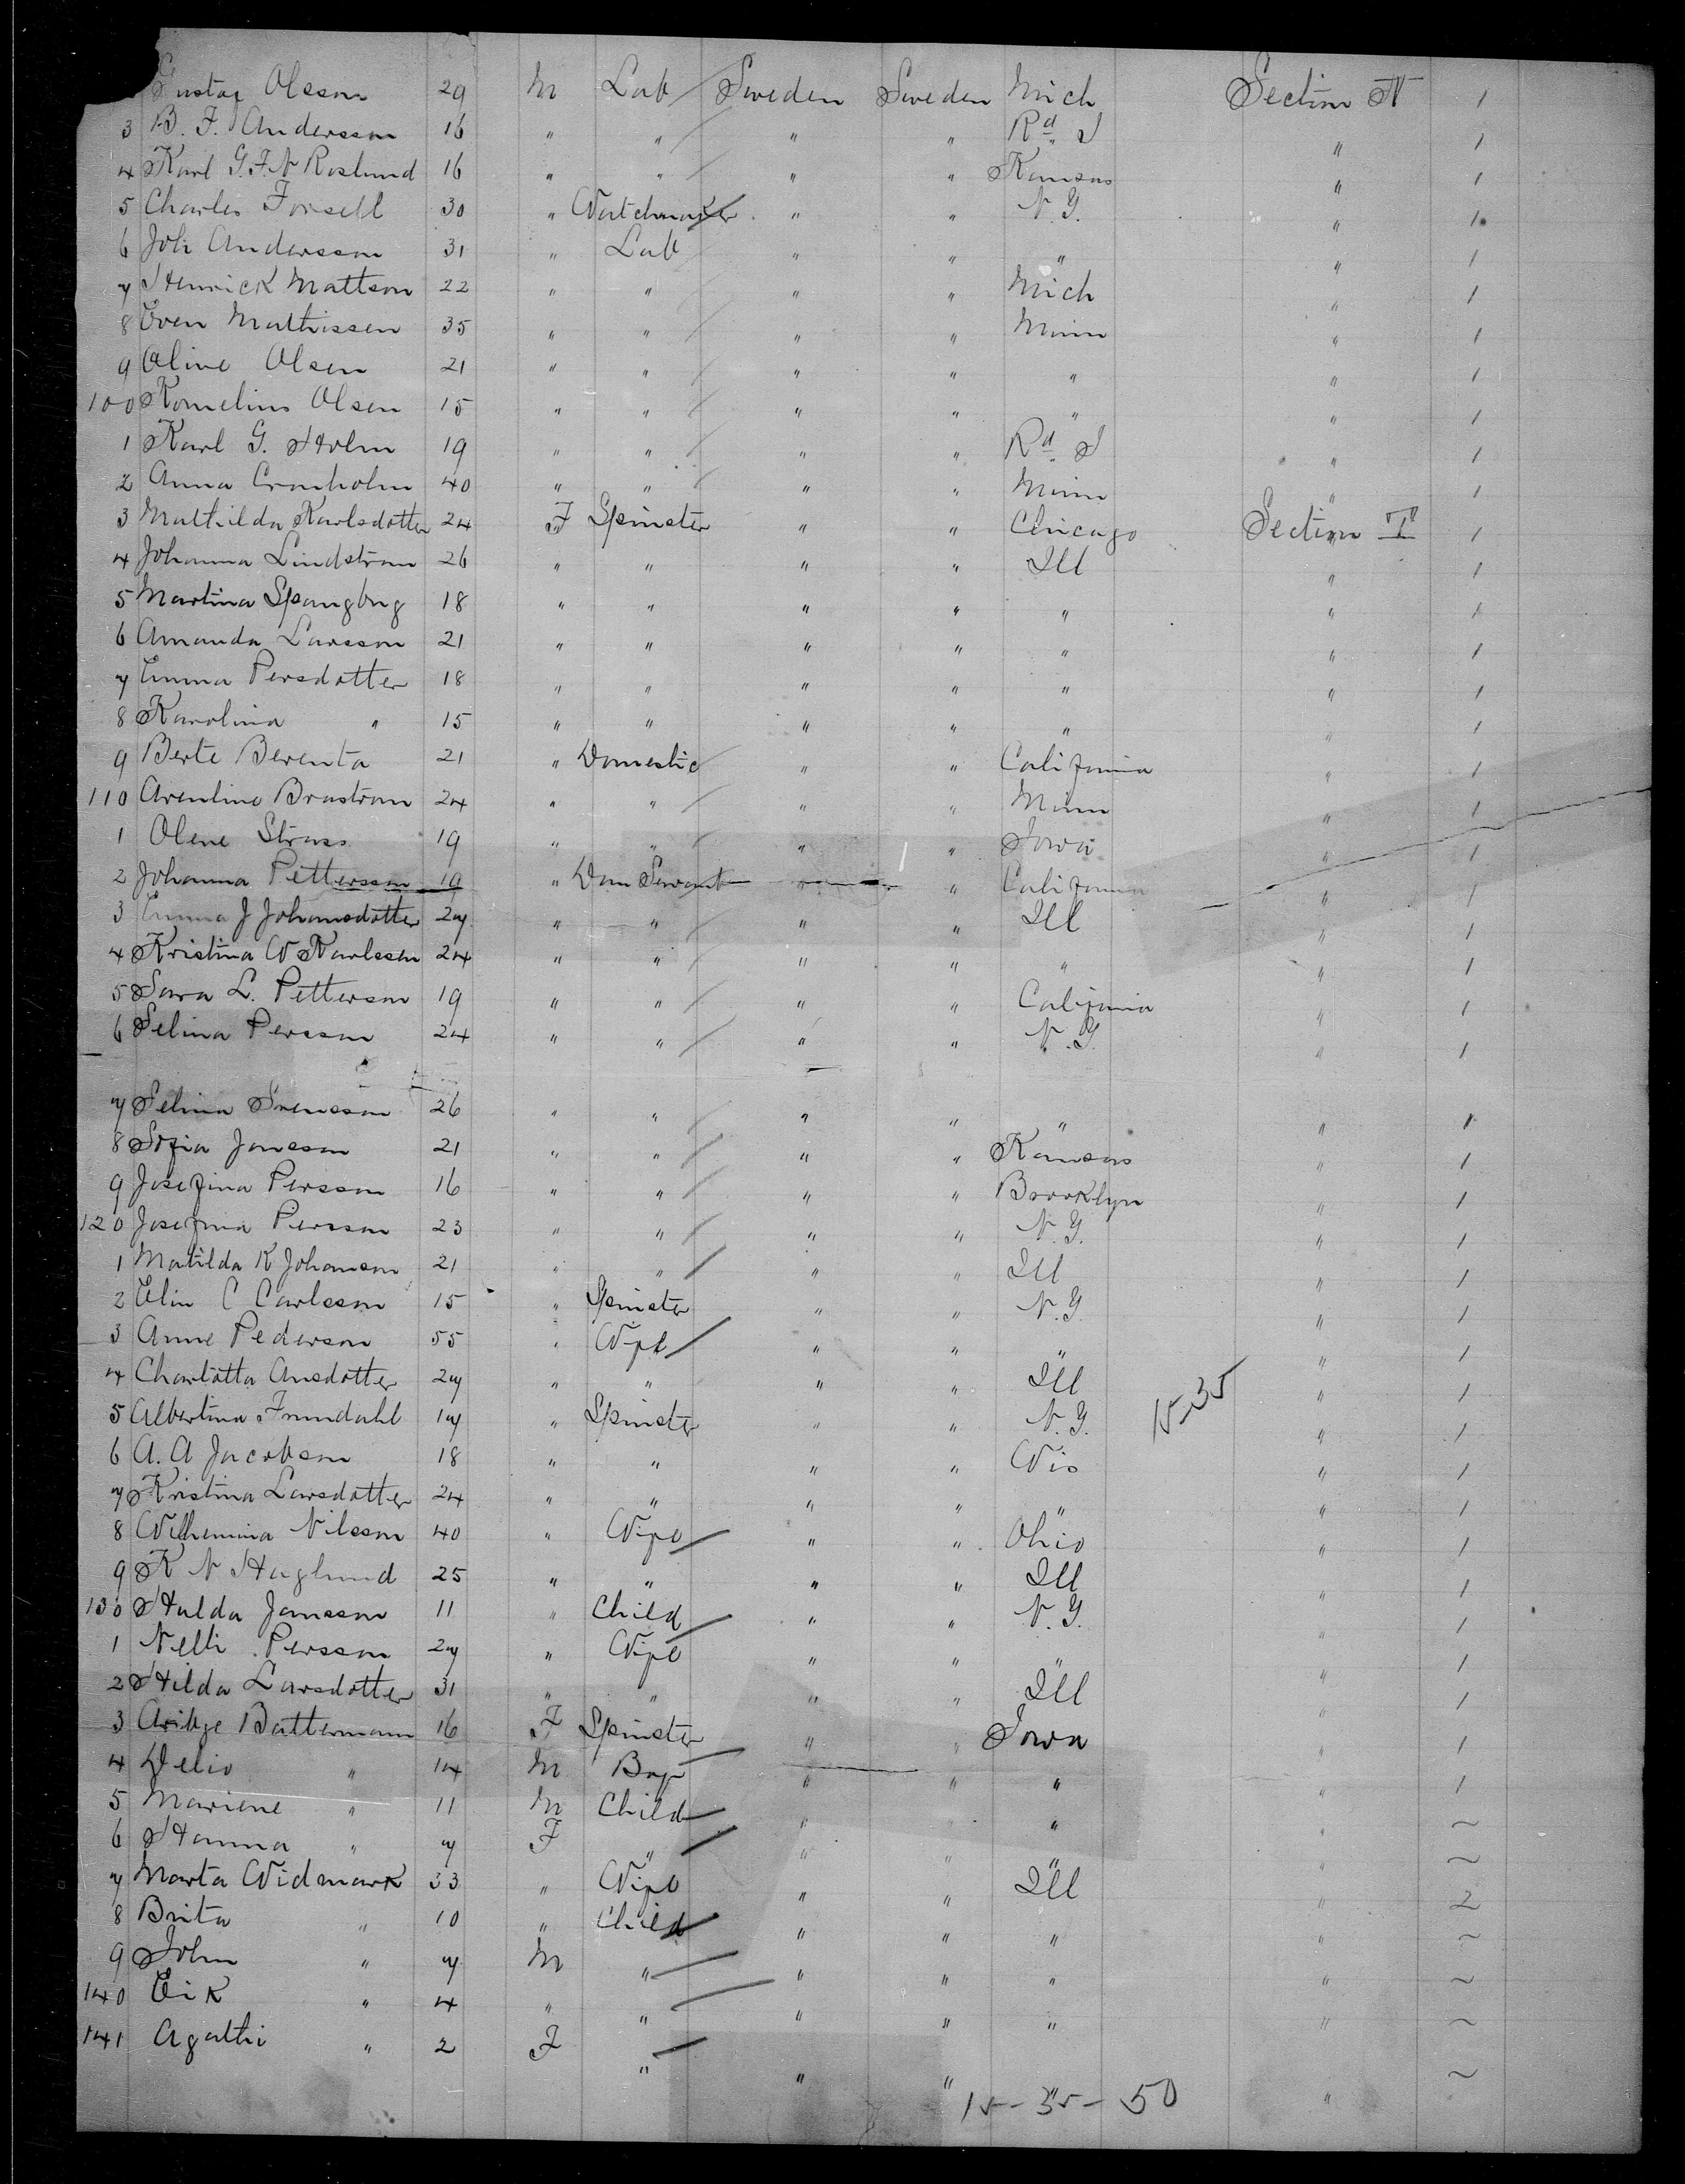 Gustaf Olsson 29 M Lab Sweden Sweden Mich Section IV 1
3 B. F. Andersson 16 " " " " Rd I " 1
4 Karl G. F. N Roslund 16 " " " " Kansas " 1
5 Charles Forsell 30 " Watchmaker " " N.Y. " 1
6 Joh Andersson 31 " Lab " " " " 1
7 Henrick Mattson 22 " " " " Mich " 1
8 Even Mathissen 35 " " " " Minn " 1
9 Oline Olsen 21 " " " " " " 1
100 Kornelius Olsen 15 " " " " " " 1
1 Karl G. Holm 19 " " " " Rd I " 1
2 Anna Cronholm 40 " " " " Minn " 1
3 Mathilda Karlsdotter 24 F Spinster " " Chicago Section I 1
4 Johanna Lindstrom 26 " " " " Ill " 1
5 Martina Spangbrg 18 " " " " " " 1
6 Amanda Larsson 21 " " " " " " 1
7 Emma Persdotter 18 " " " " " " 1
8 Karolina " 15 " " " " " " 1
9 Berte Berenta 21 " Domestic " " California " 1
110 Arentine Brastrom 24 " " " " Minn " 1
1 Olene Strass 19 " " " " Iowa " 1
2 Johanna Pettersson 19 " Dom Servant " " California " 1
3 Emma J Johansdotter 27 " " " " Ill " 1
4 Kristina W Karlsson 24 " " " " " " 1
5 Sara L. Petterson 19 " " " " California " 1
6 Selina Persson 24 " " " " N.Y. " 1
7 Selina Svensson 26 " " " " " " 1
8 Sofia Jonsson 21 " " " " Kansas " 1
9 Josefina Persson 16 " " " " Brooklyn " 1
120 Josefina Persson 23 " " " " N.Y. " 1
1 Matilda K Johanson 21 " " " " Ill " 1
2 Elin C Carlsson 15 " Spinster " " N.Y. " 1
3 Anne Pederson 55 " Wife " " " " 1
4 Charlotta Ansdotter 27 " " " " Ill " 1
5 Albertina Frundahl 17 " Spinster " " N.Y. 15-35 " 1
6 A. A Jacobson 18 " " " " Wis " 1
7 Kristina Larsdotter 24 " " " " " " 1
8 Wilhemina Nilsson 40 " Wife " " Ohio " 1
9 K N Haglund 25 " " " " Ill " 1
130 Hulda Jonsson 11 " Child " " N.Y. " 1
1 Nelli Persson 27 " Wife " " " " 1
2 Hilda Larsdotter 31 " " " " Ill " 1
3 Battermann 16 F Spinster " " Iowa " 1
4 Delio " 14 M Boy " " " " 1
5 Mariene " 11 M Child " " " " ~
6 Hanna " 7 F " " " " " ~
7 Marta Widmark 33 " Wife " " Ill " 2
8 Brita " 10 " Child " " " " ~
9 John " 7 M " " " " " ~
140 Eik " 4 " " " " " " ~
141 Agathi " 2 F " " " " " ~
15-35-50